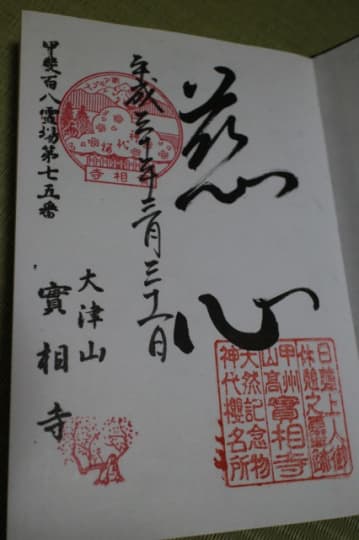 慈心
日蓮上人御
甲州
山高
實相寺
天然記念物
神代櫻名所
平成三十年三月三十一日
神代桜
寺相實
甲斐百八霊場第七五番
大津山
實相寺